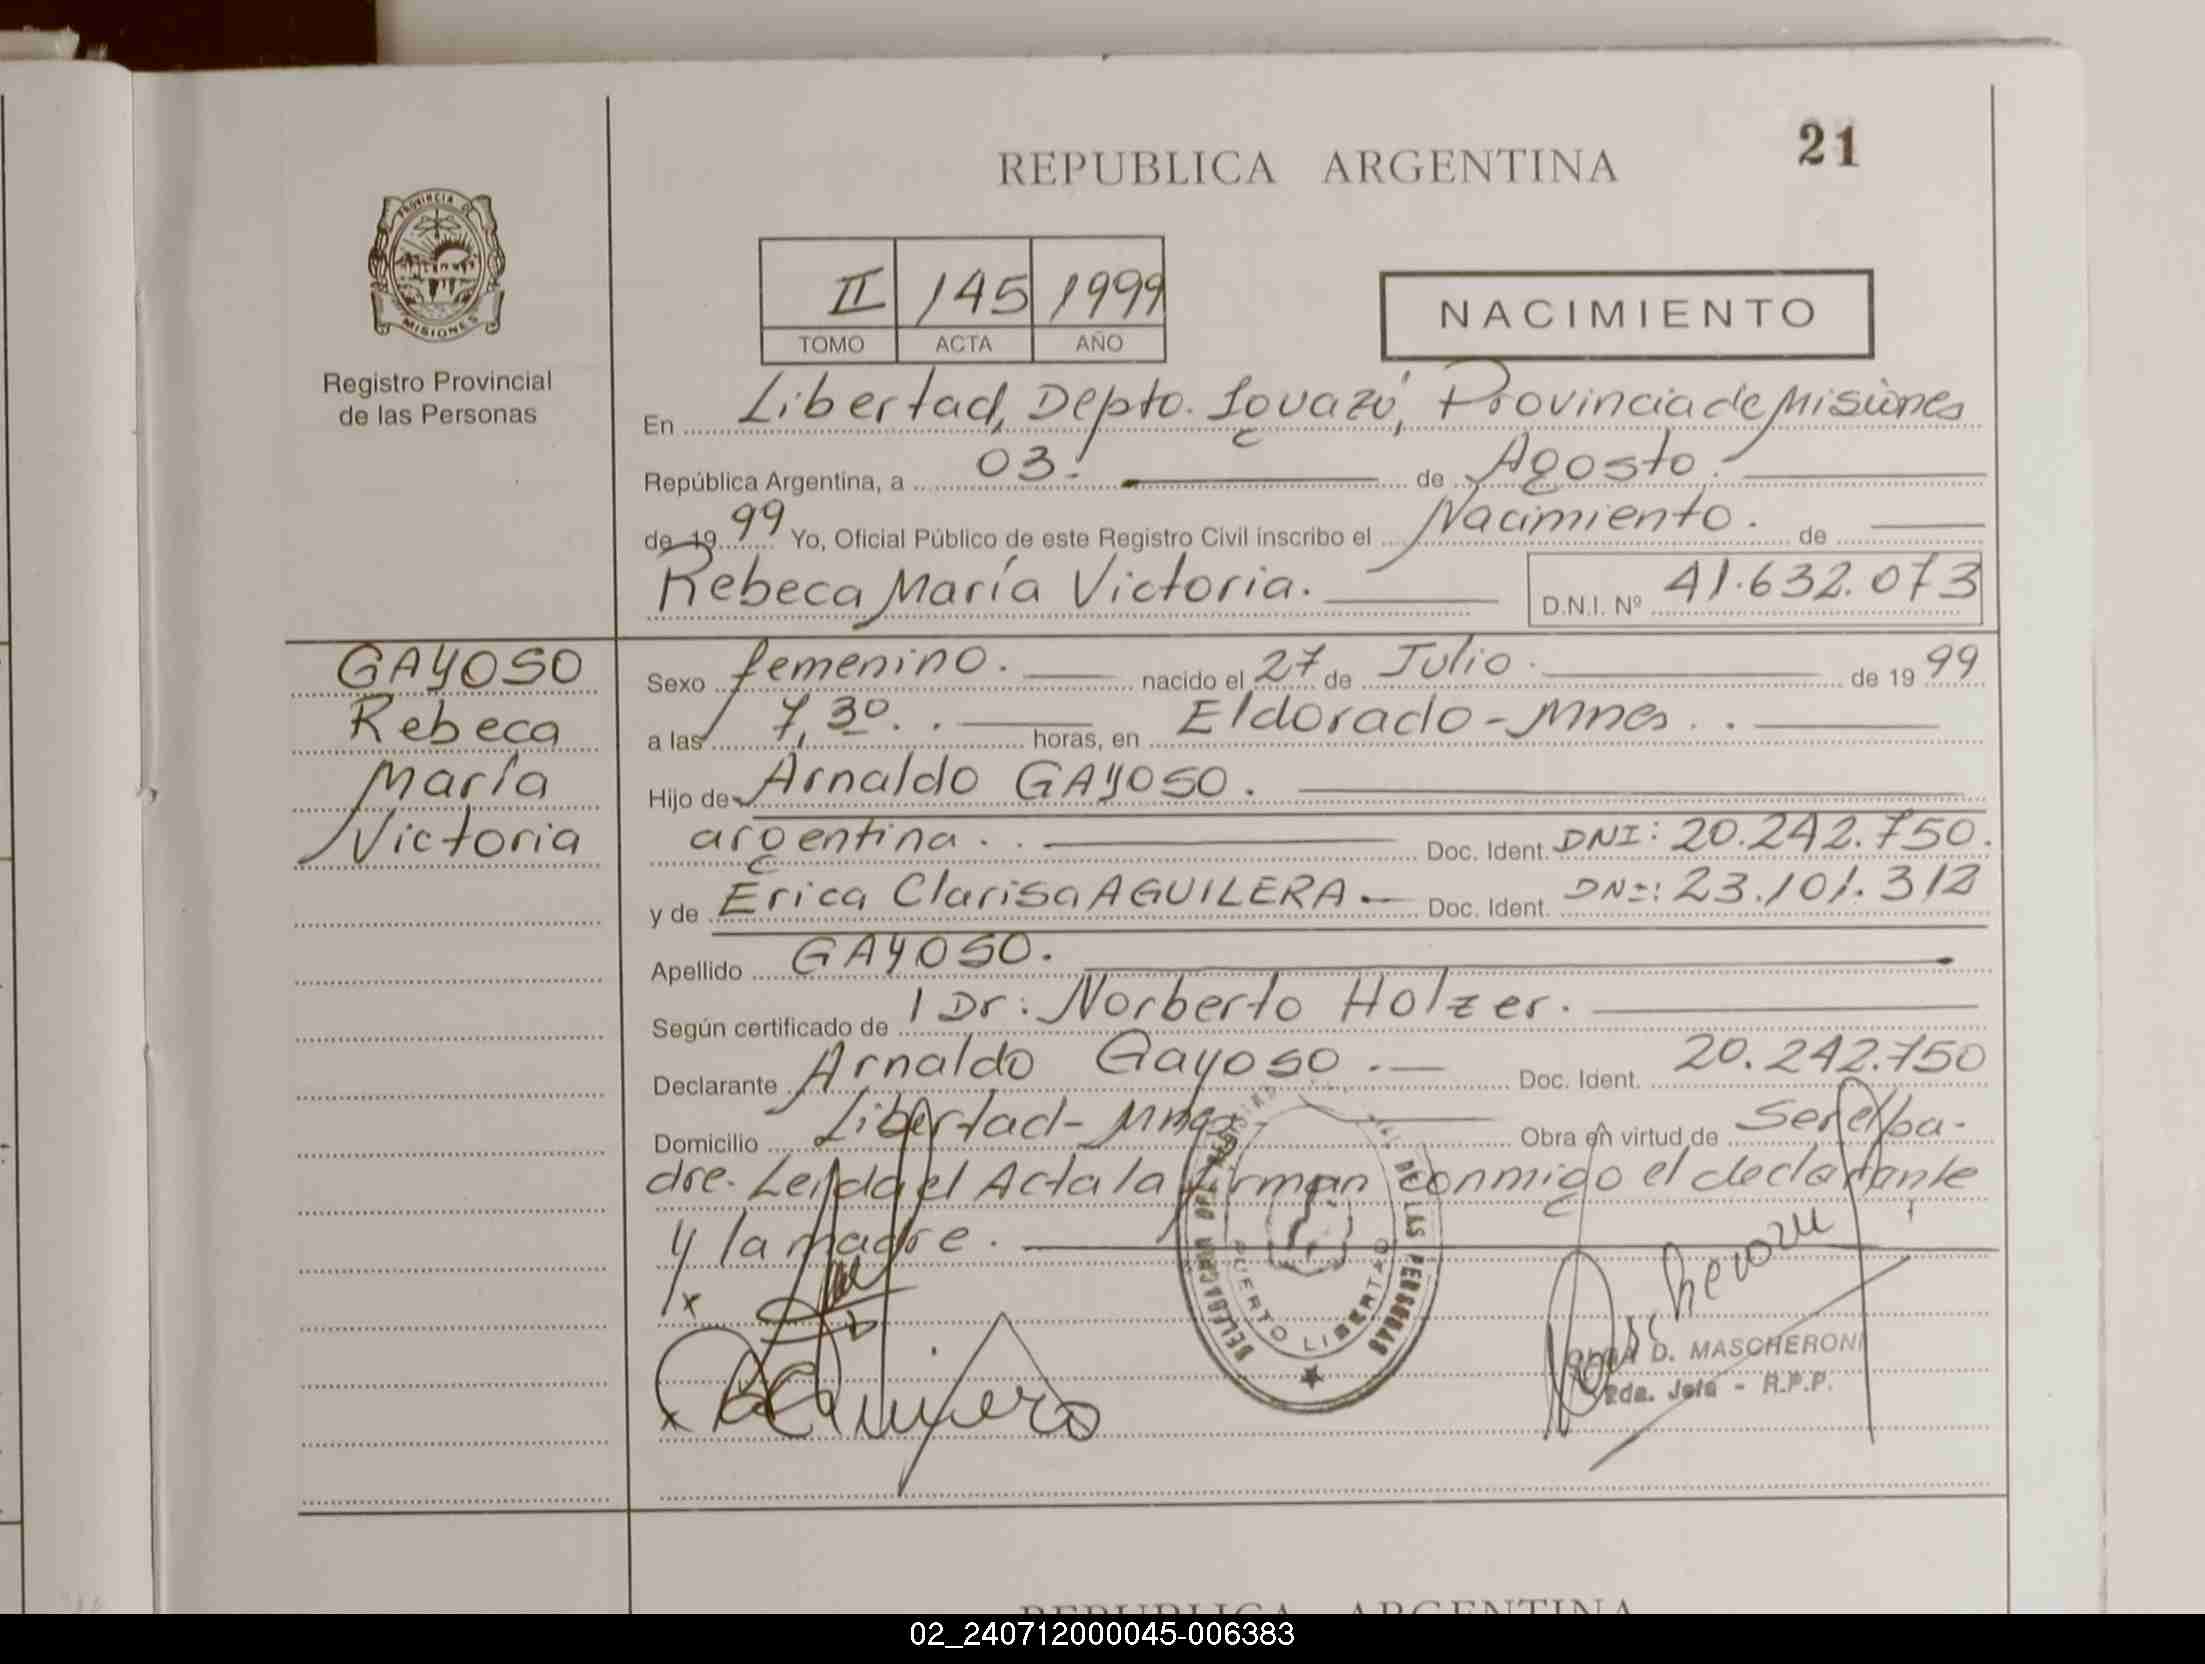 21
REPUBLICA ARGENTINA
PROVINCIA DE
MISIONES
Registro Provincial
de las Personas
II 145 1999
TOMO ACTA AÑO
NACIMIENTO
En Libertad, Depto. Iguazú, Provincia de Misiones
República Argentina, a 03. de Agosto.
de 1999 Yo, Oficial Público de este Registro Civil inscribo el Nacimiento. de
Rebeca María Victoria. D.N.I. Nº 41.632.073
GAYOSO
Rebeca
María
Victoria
Sexo femenino. nacido el 27 de Julio. de 1999
a las 7,30. . horas, en Eldorado - Mnes. .
Hijo de Arnaldo GAYOSO.
argentina. . Doc. Ident. DNI: 20.242.750.
y de Erica Clarisa AGUILERA.- Doc. Ident. DNI: 23.101.312
Apellido GAYOSO.
Según certificado de l Dr: Norberto Holzer.
Declarante Arnaldo Gayoso.- Doc. Ident. 20.242.750
Domicilio Libertad - Mnes- Obra en virtud de Ser el pa-
dre. Leida el Acta la firman conmigo el declarante
y la madre.
x
x
DELEGACION DEL REGISTRO DE LAS PERSONAS
PUERTO LIBERTAD
D. MASCHERONI
2da. Jefa - R.P.P.
REPUBLICA ARGENTINA
02_240712000045-006383